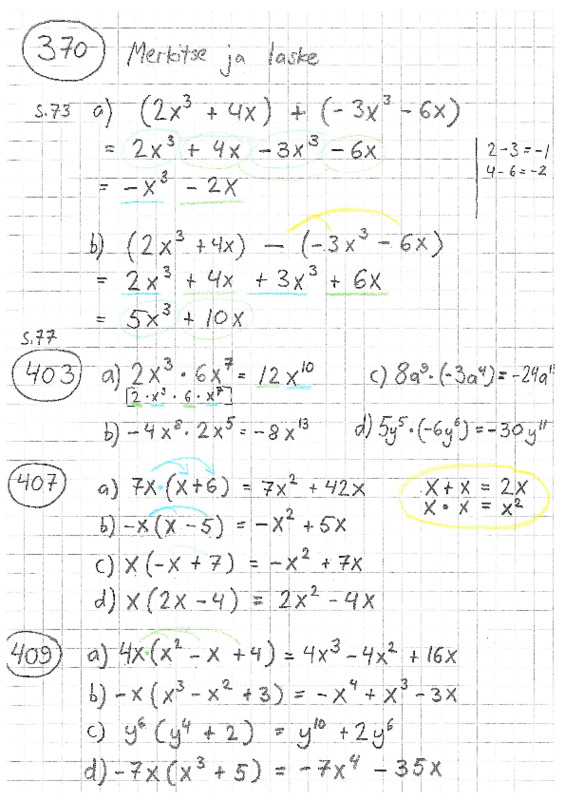 370 Merkitse ja laske
s.73 a) (2x³ + 4x) + (-3x³ - 6x)
= 2x³ + 4x - 3x³ - 6x
2-3=-1
4-6=-2
= -x³ - 2x
b) (2x³ + 4x) - (-3x³ - 6x)
= 2x³ + 4x + 3x³ + 6x
= 5x³ + 10x
s.77
403 a) 2x³ · 6x⁷ = 12x¹⁰
[2 · x³ · 6 · x⁷]
c) 8a⁹·(-3a⁴)=-24a¹³
b) -4x⁸ · 2x⁵ = -8x¹³
d) 5y⁵·(-6y⁶)=-30y¹¹
407 a) 7x·(x+6) = 7x² + 42x
b) -x(x-5) = -x² + 5x
c) x(-x+7) = -x² + 7x
d) x(2x-4) = 2x² - 4x
x + x = 2x
x · x = x²
409 a) 4x·(x² - x + 4) = 4x³ - 4x² + 16x
b) -x(x³ - x² + 3) = -x⁴ + x³ - 3x
c) y⁶(y⁴ + 2) = y¹⁰ + 2y⁶
d) -7x(x³ + 5) = -7x⁴ - 35x